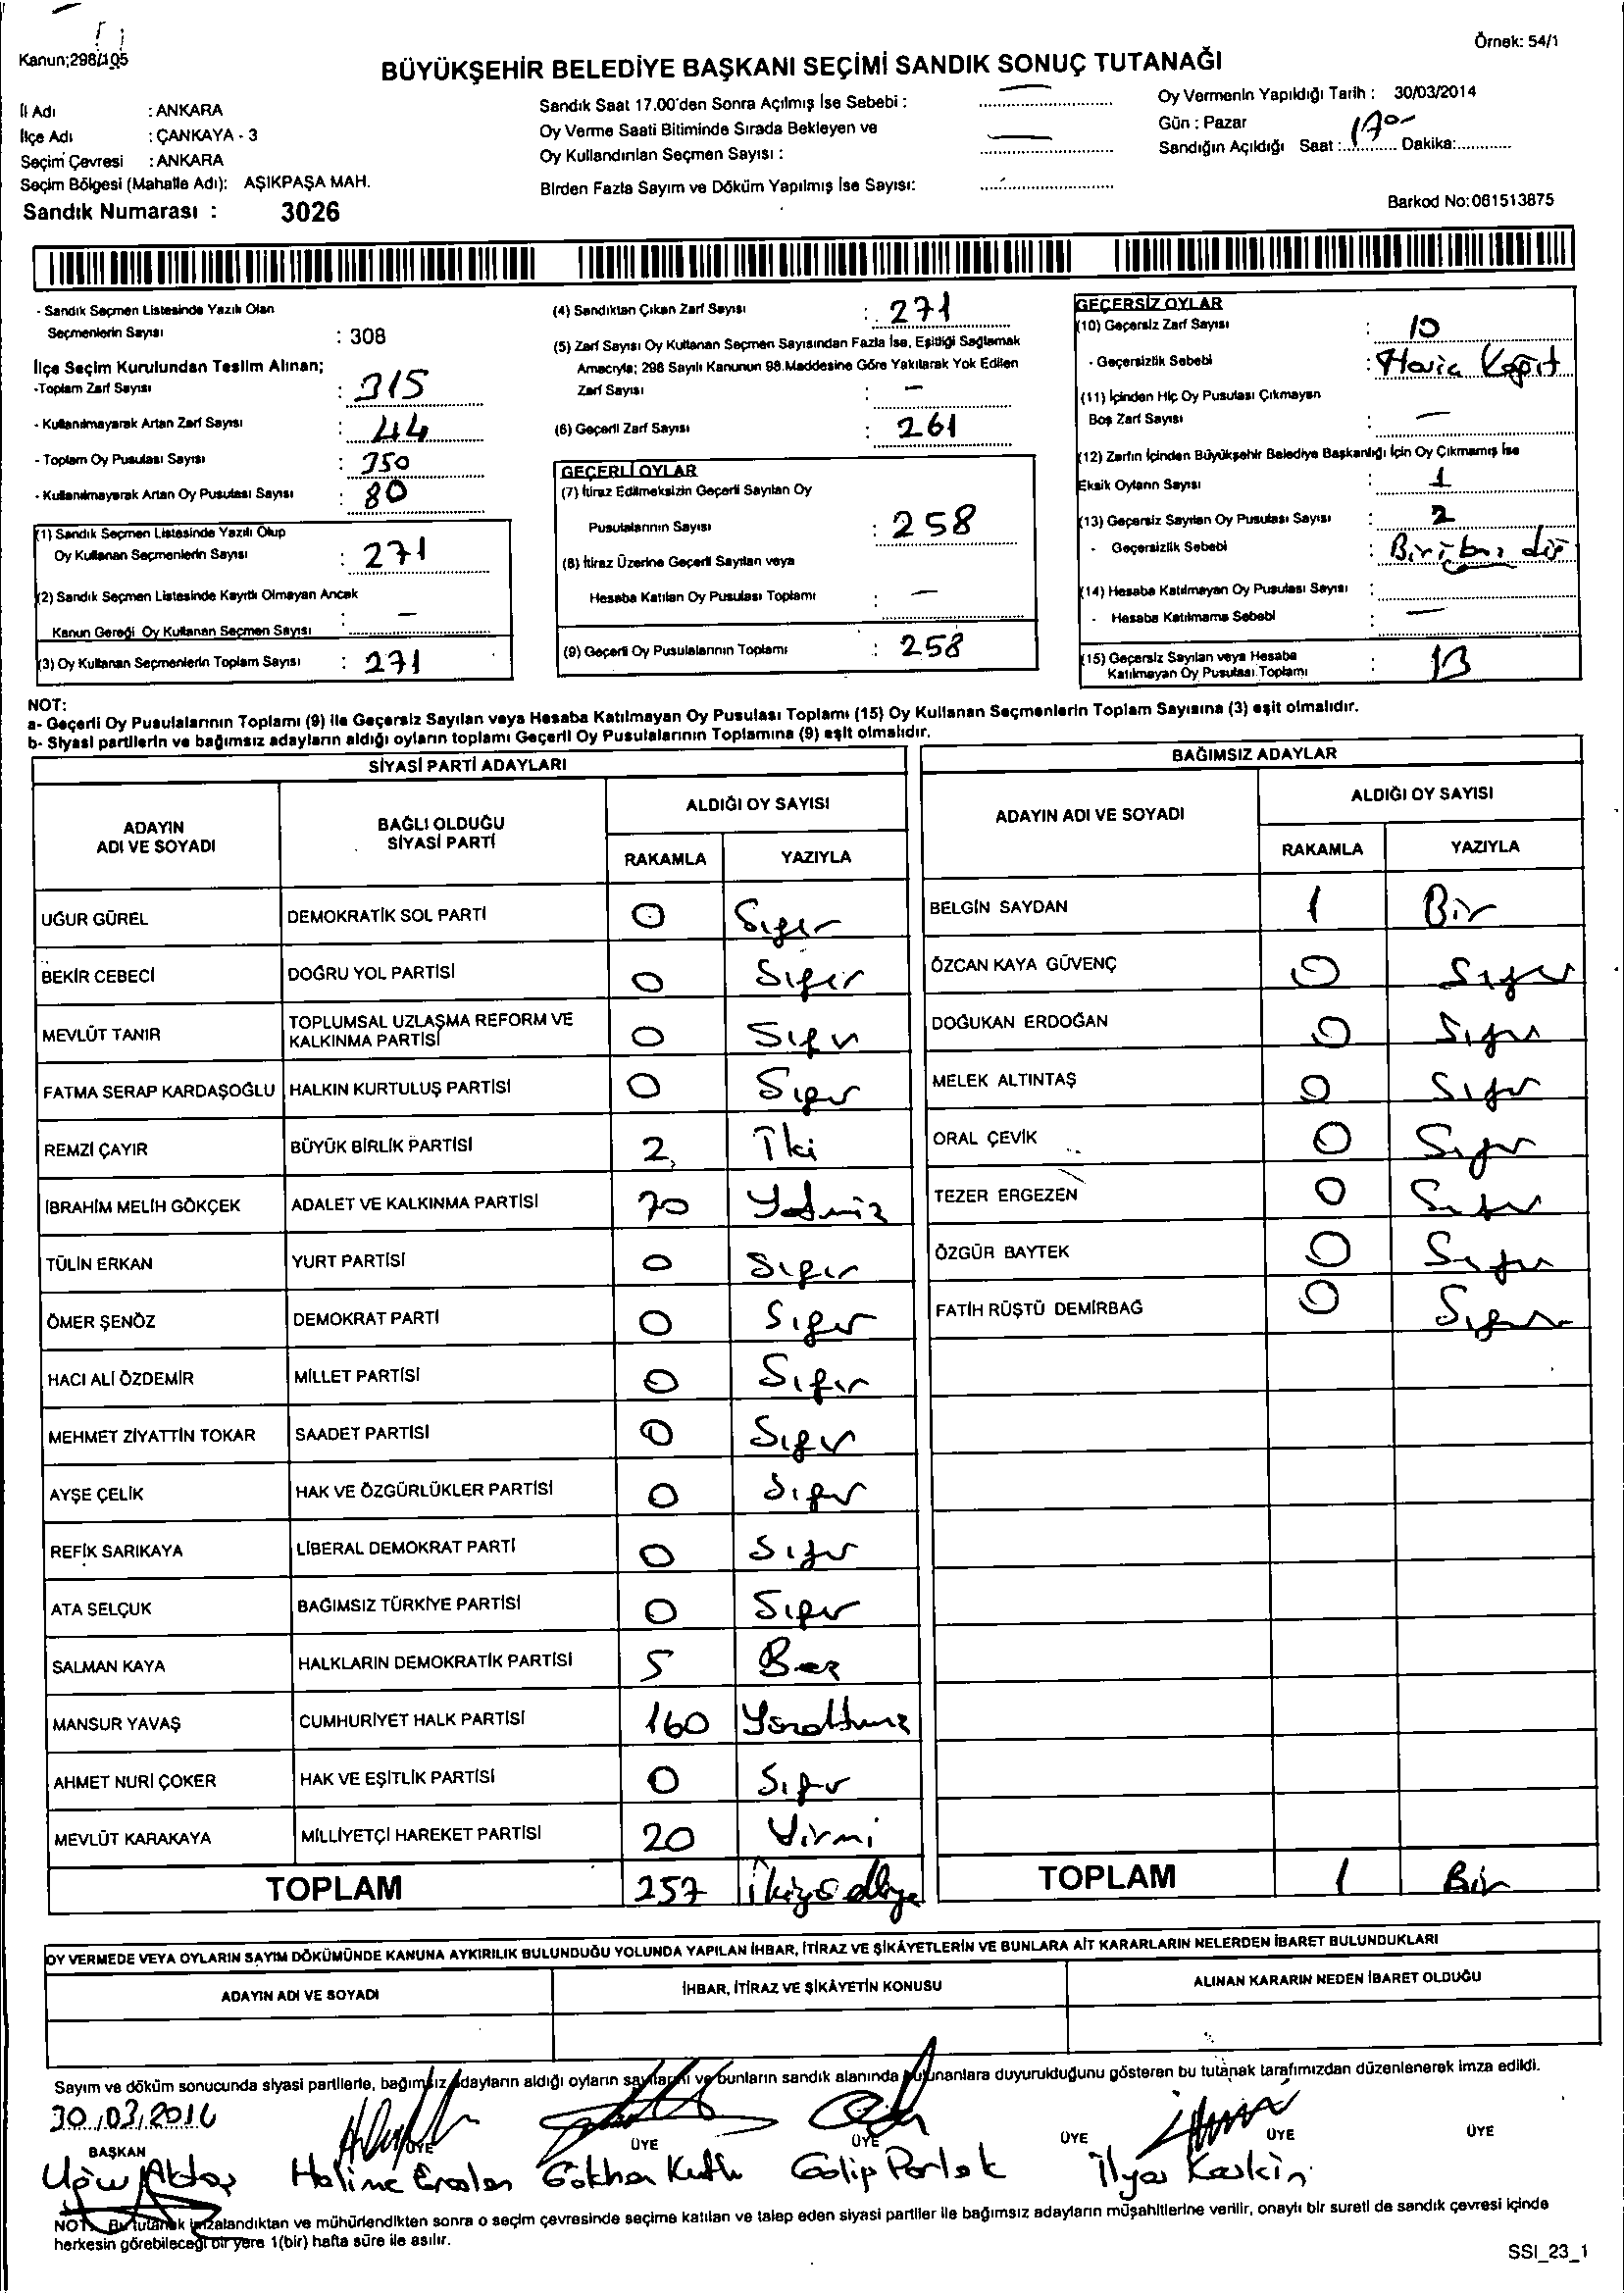 Örnek: 54/1
Kanun;298/105
BÜYÜKŞEHİR BELEDİYE BAŞKANI SEÇİMİ SANDIK SONUÇ TUTANAĞI
İl Adı : ANKARA
İlçe Adı : ÇANKAYA - 3
Seçim Çevresi : ANKARA
Seçim Bölgesi (Mahalle Adı): AŞIKPAŞA MAH.
Sandık Numarası : 3026
Sandık Saat 17.00'den Sonra Açılmış İse Sebebi : —
Oy Verme Saati Bitiminde Sırada Bekleyen ve
Oy Kullandırılan Seçmen Sayısı : —
Birden Fazla Sayım ve Döküm Yapılmış İse Sayısı:
Oy Vermenin Yapıldığı Tarih : 30/03/2014
Gün : Pazar
Sandığın Açıldığı Saat : 17 00 Dakika:
Barkod No:061513875
- Sandık Seçmen Listesinde Yazılı Olan
Seçmenlerin Sayısı : 308
İlçe Seçim Kurulundan Teslim Alınan;
-Toplam Zarf Sayısı : 315
- Kullanılmayarak Artan Zarf Sayısı : 44
- Toplam Oy Pusulası Sayısı : 350
- Kullanılmayarak Artan Oy Pusulası Sayısı : 80
(1) Sandık Seçmen Listesinde Yazılı Olup
Oy Kullanan Seçmenlerin Sayısı : 271
(2) Sandık Seçmen Listesinde Kayıtlı Olmayan Ancak
Kanun Gereği Oy Kullanan Seçmen Sayısı : —
(3) Oy Kullanan Seçmenlerin Toplam Sayısı : 271
(4) Sandıktan Çıkan Zarf Sayısı : 271
(5) Zarf Sayısı Oy Kullanan Seçmen Sayısından Fazla İse, Eşitliği Sağlamak
Amacıyla; 298 Sayılı Kanunun 98.Maddesine Göre Yakılarak Yok Edilen
Zarf Sayısı : —
(6) Geçerli Zarf Sayısı : 261
GEÇERLİ OYLAR
(7) İtiraz Edilmeksizin Geçerli Sayılan Oy
Pusulalarının Sayısı : 258
(8) İtiraz Üzerine Geçerli Sayılan veya
Hesaba Katılan Oy Pusulası Toplamı : —
(9) Geçerli Oy Pusulalarının Toplamı : 258
GEÇERSİZ OYLAR
(10) Geçersiz Zarf Sayısı : 10
- Geçersizlik Sebebi : Haric Kağıt
(11) İçinden Hiç Oy Pusulası Çıkmayan
Boş Zarf Sayısı : —
(12) Zarfın İçinden Büyükşehir Belediye Başkanlığı İçin Oy Çıkmamış İse
Eksik Oyların Sayısı : 1
(13) Geçersiz Sayılan Oy Pusulası Sayısı : 2
- Geçersizlik Sebebi :
(14) Hesaba Katılmayan Oy Pusulası Sayısı :
- Hesaba Katılmama Sebebi : —
(15) Geçersiz Sayılan veya Hesaba
Katılmayan Oy Pusulası Toplamı : 13
NOT:
a- Geçerli Oy Pusulalarının Toplamı (9) ile Geçersiz Sayılan veya Hesaba Katılmayan Oy Pusulası Toplamı (15) Oy Kullanan Seçmenlerin Toplam Sayısına (3) eşit olmalıdır.
b- Siyasi partilerin ve bağımsız adayların aldığı oyların toplamı Geçerli Oy Pusulalarının Toplamına (9) eşit olmalıdır.
SİYASİ PARTİ ADAYLARI
ADAYIN ADI VE SOYADI
BAĞLI OLDUĞU SİYASİ PARTİ
ALDIĞI OY SAYISI
RAKAMLA YAZIYLA
UĞUR GÜREL DEMOKRATİK SOL PARTİ 0 Sıfır
BEKİR CEBECİ DOĞRU YOL PARTİSİ 0 Sıfır
MEVLÜT TANIR TOPLUMSAL UZLAŞMA REFORM VE KALKINMA PARTİSİ 0 Sıfır
FATMA SERAP KARDAŞOĞLU HALKIN KURTULUŞ PARTİSİ 0 Sıfır
REMZİ ÇAYIR BÜYÜK BİRLİK PARTİSİ 2 İki
İBRAHİM MELİH GÖKÇEK ADALET VE KALKINMA PARTİSİ 70 Yetmiş
TÜLİN ERKAN YURT PARTİSİ 0 Sıfır
ÖMER ŞENÖZ DEMOKRAT PARTİ 0 Sıfır
HACI ALİ ÖZDEMİR MİLLET PARTİSİ 0 Sıfır
MEHMET ZİYATTİN TOKAR SAADET PARTİSİ 0 Sıfır
AYŞE ÇELİK HAK VE ÖZGÜRLÜKLER PARTİSİ 0 Sıfır
REFİK SARIKAYA LİBERAL DEMOKRAT PARTİ 0 Sıfır
ATA SELÇUK BAĞIMSIZ TÜRKİYE PARTİSİ 0 Sıfır
SALMAN KAYA HALKLARIN DEMOKRATİK PARTİSİ 5 Beş
MANSUR YAVAŞ CUMHURİYET HALK PARTİSİ 160 Yüzaltmış
AHMET NURİ ÇOKER HAK VE EŞİTLİK PARTİSİ 0 Sıfır
MEVLÜT KARAKAYA MİLLİYETÇİ HAREKET PARTİSİ 20 Yirmi
TOPLAM 257
BAĞIMSIZ ADAYLAR
ADAYIN ADI VE SOYADI
ALDIĞI OY SAYISI
RAKAMLA YAZIYLA
BELGİN SAYDAN 1 Bir
ÖZCAN KAYA GÜVENÇ 0 Sıfır
DOĞUKAN ERDOĞAN 0 Sıfır
MELEK ALTINTAŞ 0 Sıfır
ORAL ÇEVİK 0 Sıfır
TEZER ERGEZEN 0 Sıfır
ÖZGÜR BAYTEK 0 Sıfır
FATİH RÜŞTÜ DEMİRBAĞ 0 Sıfır
TOPLAM 1 Bir
OY VERMEDE VEYA OYLARIN SAYIM DÖKÜMÜNDE KANUNA AYKIRILIK BULUNDUĞU YOLUNDA YAPILAN İHBAR, İTİRAZ VE ŞİKÂYETLERİN VE BUNLARA AİT KARARLARIN NELERDEN İBARET BULUNDUKLARI
ADAYIN ADI VE SOYADI İHBAR, İTİRAZ VE ŞİKÂYETİN KONUSU ALINAN KARARIN NEDEN İBARET OLDUĞU
Sayım ve döküm sonucunda siyasi partilerle, bağımsız adayların aldığı oyların sayılarını ve bunların sandık alanında bulunanlara duyurulduğunu gösteren bu tutanak tarafımızdan düzenlenerek imza edildi.
30.03.2014
BAŞKAN ÜYE ÜYE ÜYE ÜYE ÜYE ÜYE
Uğur Aktaş Halime Gökhan Kutlu Galip Parlak İlyas Keskin
NOT: Bu tutanak imzalandıktan ve mühürlendikten sonra o seçim çevresinde seçime katılan ve talep eden siyasi partiler ile bağımsız adayların müşahitlerine verilir, onaylı bir sureti de sandık çevresi içinde
herkesin görebileceği bir yere 1(bir) hafta süre ile asılır.
SSI_23_1